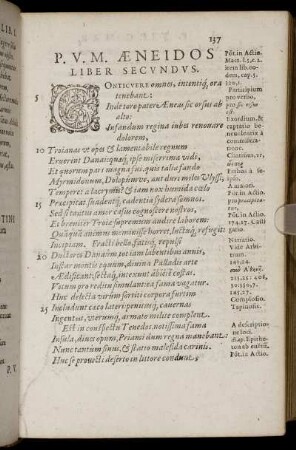 137
P. V. M. ÆNEIDOS
LIBER SECVNDVS.
CONTICVERE omnes, intentiq́; ora
tenebant:
5
Inde toro pater Æneas sic orsus ab
alto:
Infandum regina iubes renouare
dolorem,
10 Troianas vt opes & lamentabile regnum
Eruerint Danai: quæq́; ipse miserrima vidi,
Et quorum pars magna fui. quis talia fando
Myrmidonum, Dolopúmve, aut duri miles Vlyssi,
Temperet à lacrymis? & iam nox humida cælo
15 Præcipitat, suadentq́; cadentia sydera somnos.
Sed si tantus amor casus cognoscere nostros,
Et breuiter Troiæ supremum audire laborem:
Quãquã animus meminisse horret, luctuq́; refugit:
Incipiam. Fracti bello, fatisq́; repulsi
20 Ductores Danaûm, tot iam labentibus annis,
Instar montis equum, diuina Palladis arte
Ædificant: sectaq́; intexunt abiete costas.
Votum pro reditu simulant: ea fama vagatur.
Huc delecta virûm sortiti corpora furtim
25 Includunt cæco lateri: penitusq́; cauernas
Ingentes, vterumq́; armato milite complent.
Est in conspectu Tenedos notissima fama
Insula, diues opum, Priami dum regna manebant:
Nunc tantùm sinus, & statio malefida carinis.
Huc se prouecti deserto in littore condunt,
Põt. in Actio.
Macr. l. 5. c. 2.
Participium
pro verbo.
Exordium, &
captatio be-
neuolentiæ à
commisera-
tione.
Põt. in Actio.
Narratio.
Compositio.
Topicusis.
A descriptio-
ne loci.
Põt. in Actio.
P. V.